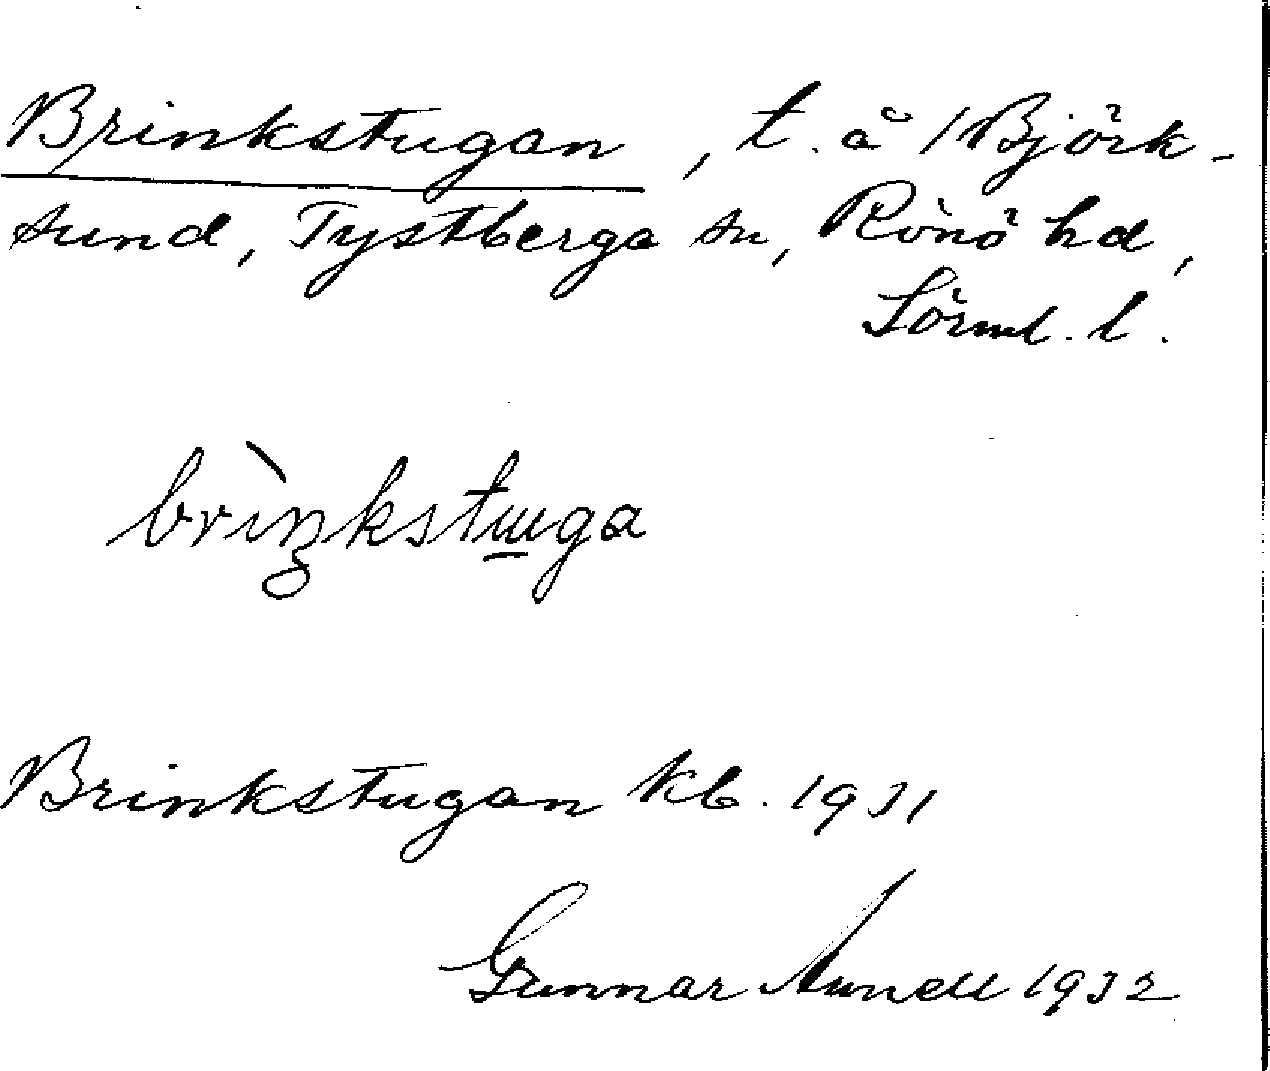 Brinkstugan, t. å /Björk-
sund, Tystberga sn, Rönö hd,
Sörml. l.
brìŋkstɯga
Brinkstugan kb. 1931
Gunnar 1932